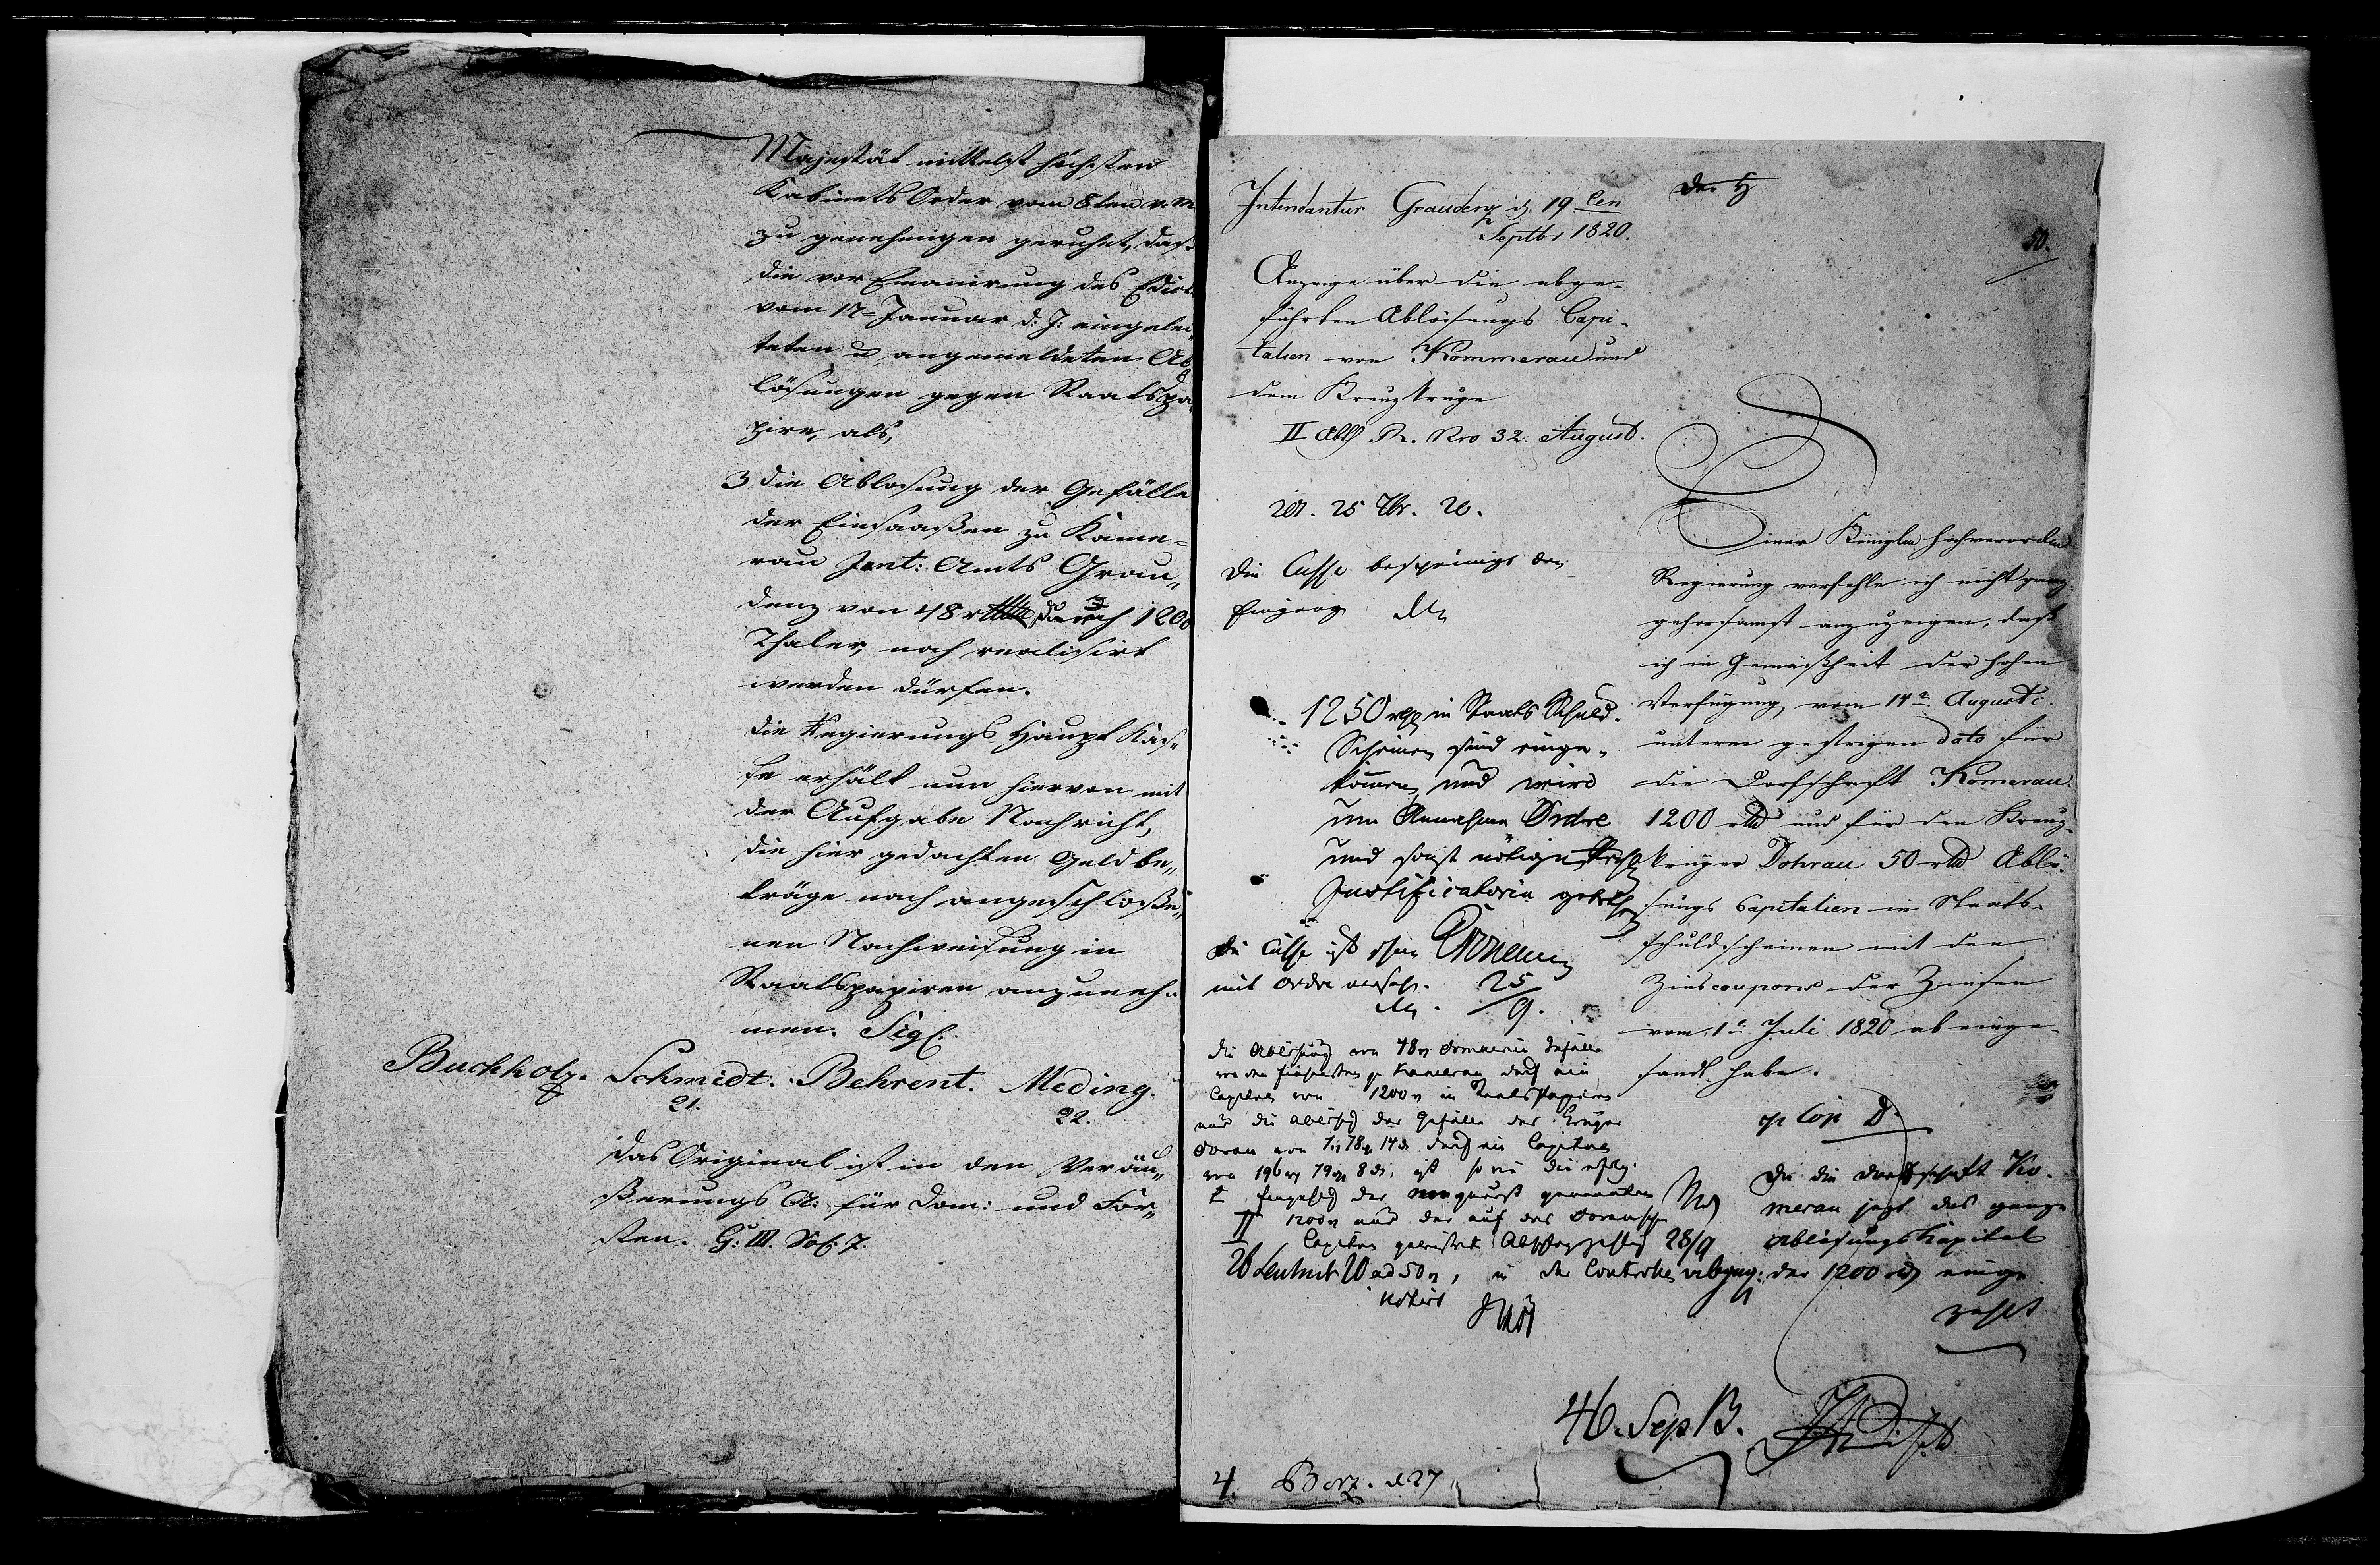 Majestät mittelst höchsten
Kabinets Order vom 8ten v. M.
zu genehmigen geruhet, daß
die vor Emanirung des Edict.
vom 17= Januar d: J: eingelei„
teten u angemeldeten Ab„
lösungen gegen Staatspa„
pire, als,
3 die Ablosung der Gefälle
der Einsaaßen zu Kome=
rau Jent: Amts Grau„
denz von 48 durch 1200
Thaler, noch realisirt
werden dürfen.
Die Regierungs Haupt Kas„
se erhält nun hiervon mit
der Aufgabe Nachricht,
die hier gedachten Geldbe„
träge nach angeschloße„
nen Nachweisung in
Staatspapiren anzuneh=
men. Sigl.
Buchholz. Schmidt. Behrent. Meding.
21. 22.
Das Original ist in den Veräu„
ßerungs A: für Dom: und For„
sten. G: III. 7.
50.
Intendantur Graudenz d. 19 ten
Septbr 1820.
Anzeige über die abge-
führten Ablösungs Capi-
talien von Kommerau und
dem Kreuzkruge
II Abth. R. Nro 32. August.
25 7br. 20.
Die Casse bescheinigt den
Eingang
1250 in Staats Schuld-
Scheinen sind einge-
komen, und wird
um Annahme Ordre
und sonst nötige
Justificatoria gebethen
Die Casse ist
mit Ordre versehen.
25/9.
Die Ablösung von 48 Domainen Gefälle
von den Einsaaßen zu Komerau durch ein
Capital von 1200 in Staats Papiren
und die Ablösung der Gefälle des Krüger
Doran von durch ein Capital
von 196 ist so wie die
Eingehung der
1200 und der auf das Doransche
Capital 28/9
ad 50, in der Controlle
notirt
4. d 27
Einer Königlen Hochverordn
Regierung verfehle ich nicht ganz
gehorsamst anzuzeigen, daß
ich in Gemäßheit der hohen
Verfügung vom 14n Augusti
unterm gestrigen dato für
die Dorfschaft Komerau
1200 rtl und für den Kreuz-
krüger Dohrau 50 rtl Ablö-
sungs Capitalien in Staats-
schuldscheinen mit den
Zinscoupons der Zinsen
vom 1n Juli 1820 ab einge-
sandt habe.
Da die Dorfschaft Ko-
merau jezt das ganze
Ablösungs Kapital
der 1200 einge
zahlt
46. Sep B.